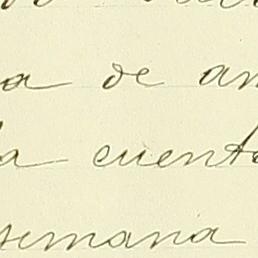 a de am
la cuenta
semana